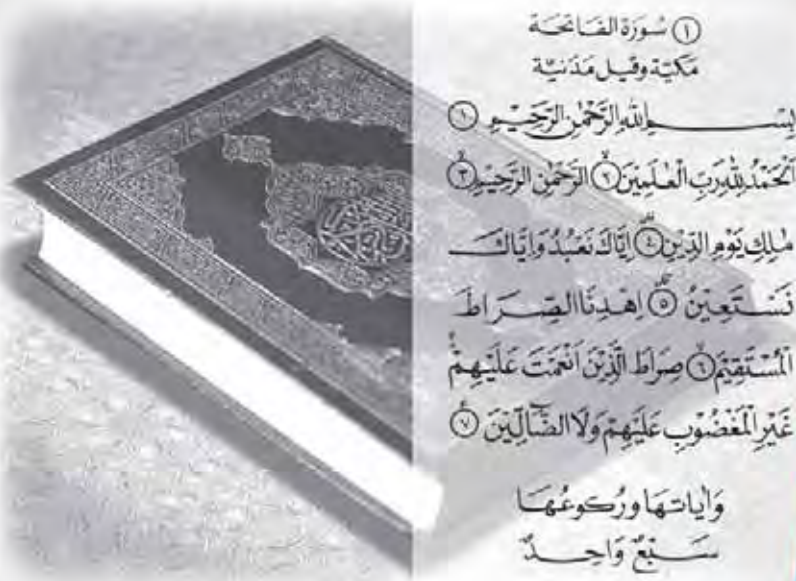 ١ سُورَةُ الفَاتِحَة
مَكِيَّة وَقِيلَ مَدَنيَّة
بِسْمِ اللهِ الرَّحْمٰنِ الرَّحِيْمِ ١
اَلْحَمْدُ لِلّٰهِ رَبِّ الْعٰلَمِيْنَ ٢ الرَّحْمٰنِ الرَّحِيْمِ ٣
مٰلِكِ يَوْمِ الدِّيْنِ ٤ اِيَّاكَ نَعْبُدُ وَاِيَّاكَ
نَسْتَعِيْنُ ٥ اِهْدِنَا الصِّرَاطَ
الْمُسْتَقِيْمَ ٦ صِرَاطَ الَّذِيْنَ اَنْعَمْتَ عَلَيْهِمْ
غَيْرِ الْمَغْضُوْبِ عَلَيْهِمْ وَلَا الضَّآلِّيْنَ ٧
وَاٰيَاتهَا وَرُكوعُهَا
سَبْعٌ وَاحِدٌ